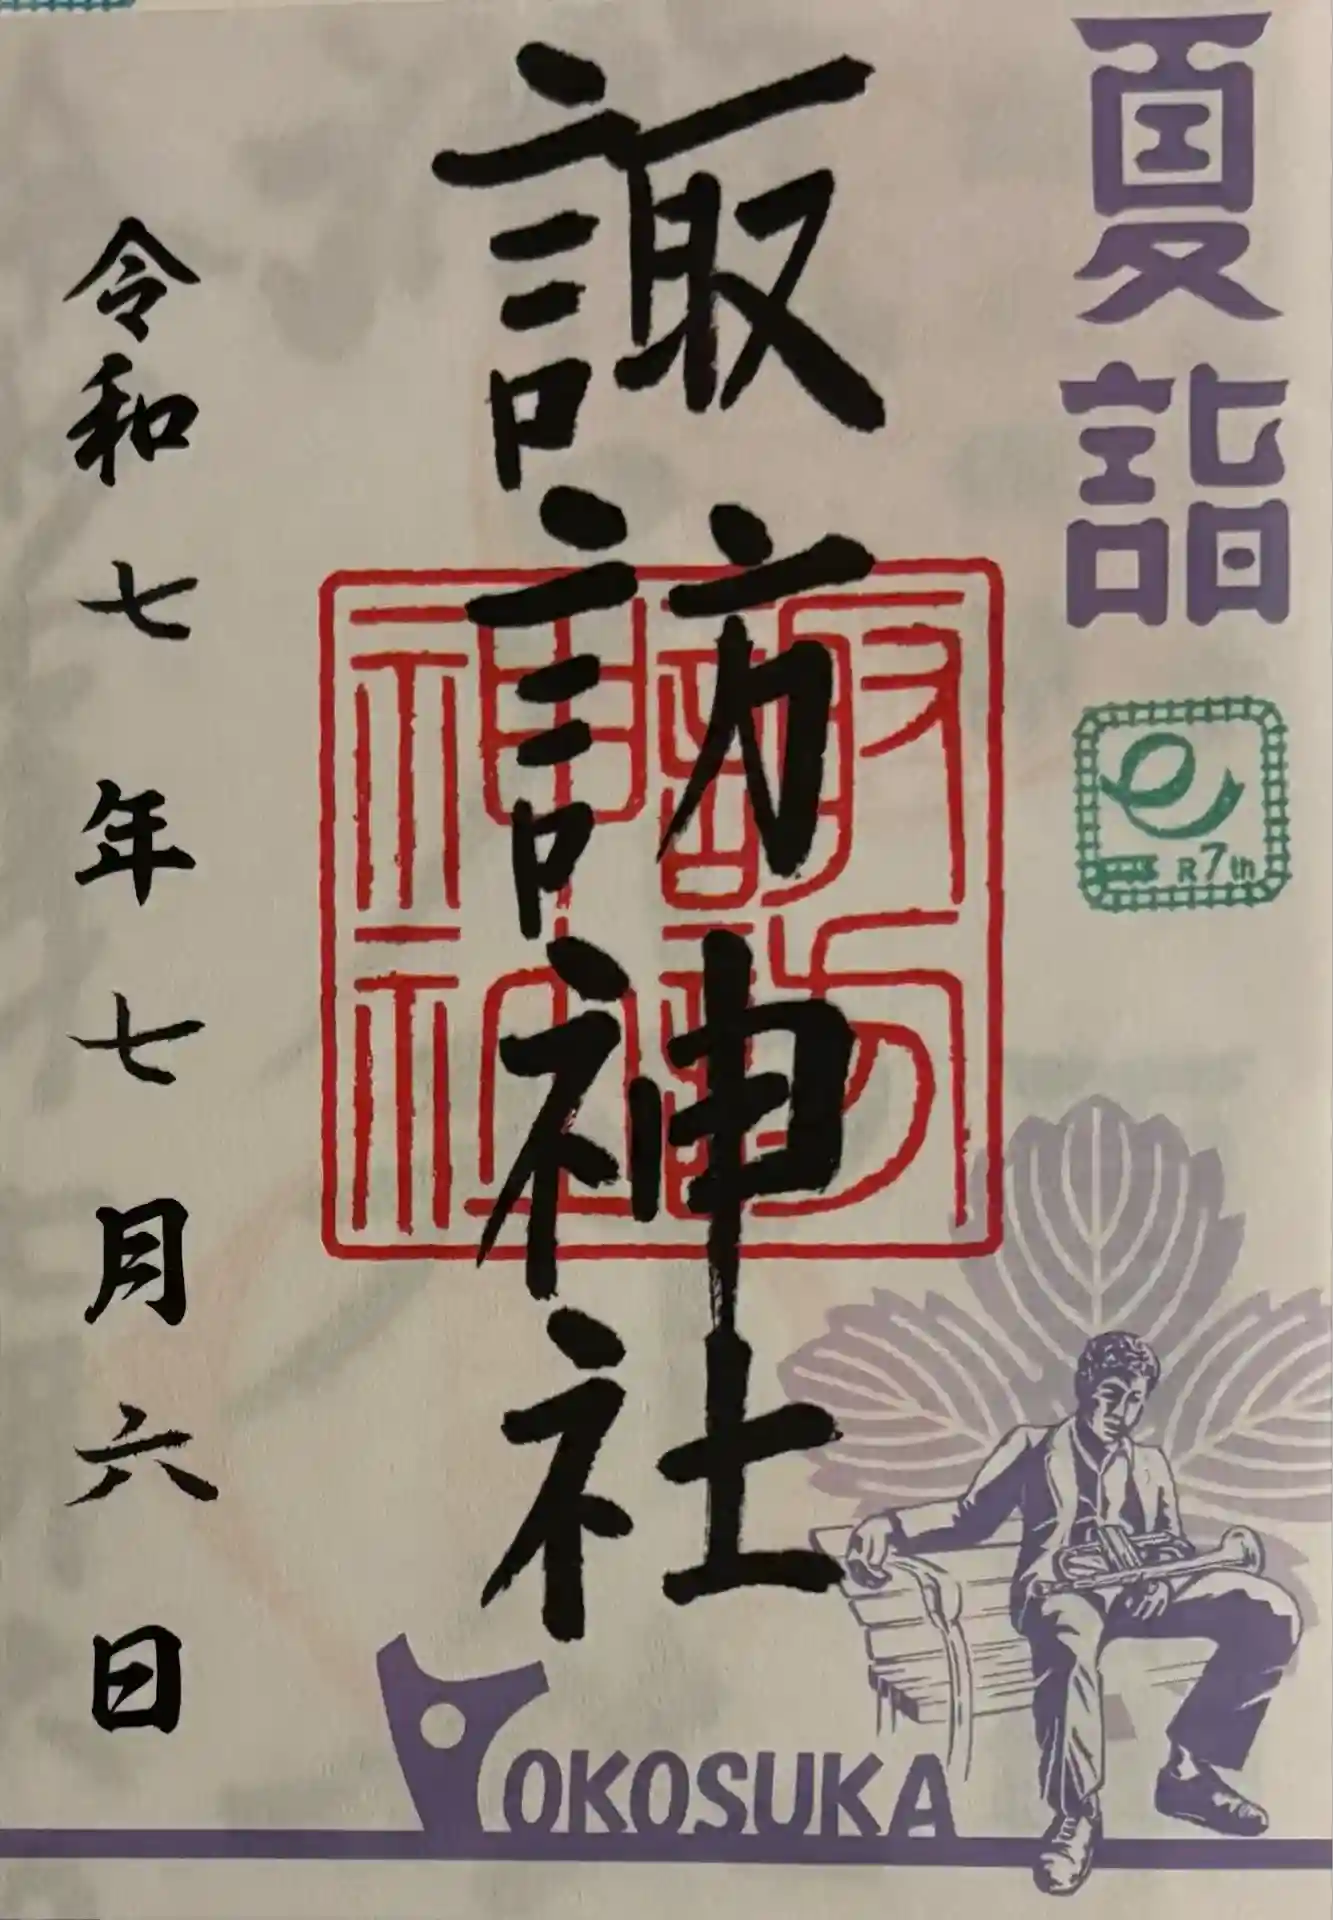 夏詣
R7th
諏訪神社
諏訪神社
令和七年七月六日
YOKOSUKA